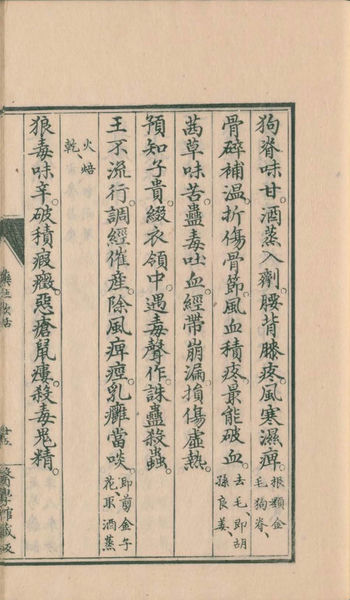 狗脊味甘。酒蒸入劑。腰背膝疼。風寒濕痺。根類金毛狗脊、
骨碎補温。折傷骨節。風血積疼。最能破血。去毛、即胡孫良姜、
茜草味苦。蠱毒吐血。經帶崩漏。損傷虛熱。
預知子貴。綴衣領中。遇毒聲作。誅蠱殺蟲。
王不流行。調經催産。除風痺痙。乳癰當啖。即剪金子花取酒蒸
火焙乾、
狼毒味辛。破積瘕癥。惡瘡鼠瘻。殺毒鬼精。